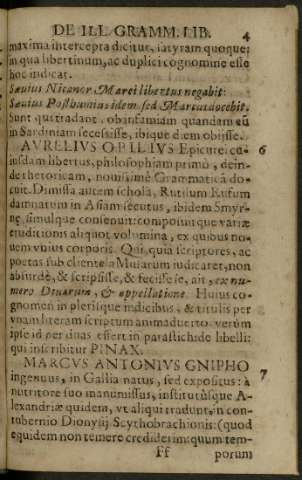 DE ILL. GRAMM. LIB. 4
maxima intercepta dicitur, satyram quoque:
in qua libertinum, ac duplici cognomine esse
hoc indicat.
Sævius Nicanor Marci libertus negabit:
Sævius Posthumius idem sed Marcus docebit.
Sunt qui tradant, ob infamiam quandam eũ
in Sardiniam secessisse, ibique diem obijsse.
AVRELIVS OPILIVS Epicurei cu- 6
iusdam libertus, philosophiam primò, dein-
de rhetoricam, nouissimè Grammaticã do-
cuit. Dimissa autem schola, Rutilium Rufum
damnatum in Asiam secutus, ibidem Smyr-
næ, simulque consenuit: composuitque variæ
eruditionis aliquot volumina, ex quibus no-
uem vnius corporis. Qui, quia scriptores, ac
poetas sub clientela Musarum iudicaret, non
absurdè, & scripsisse, & fecisse se, ait, ex nu-
mero Diuarum, & appellatione. Huius co-
gnomen in plerisque indicibus, & titulis per
vnam literam scriptum animaduerto. verùm
ipse id per duas effert in parastichide libelli:
qui inscribitur PINAX.
MARCVS ANTONIVS GNIPHO
ingenuus, in Gallia natus, sed expositus: à 7
nutritore suo manumissus, institutúsque A-
lexandriæ quidem, vt aliqui tradunt, in con-
tubernio Dionysij Scythobrachionis: (quod
equidem non temere crediderim: quum tem-
Ff porum